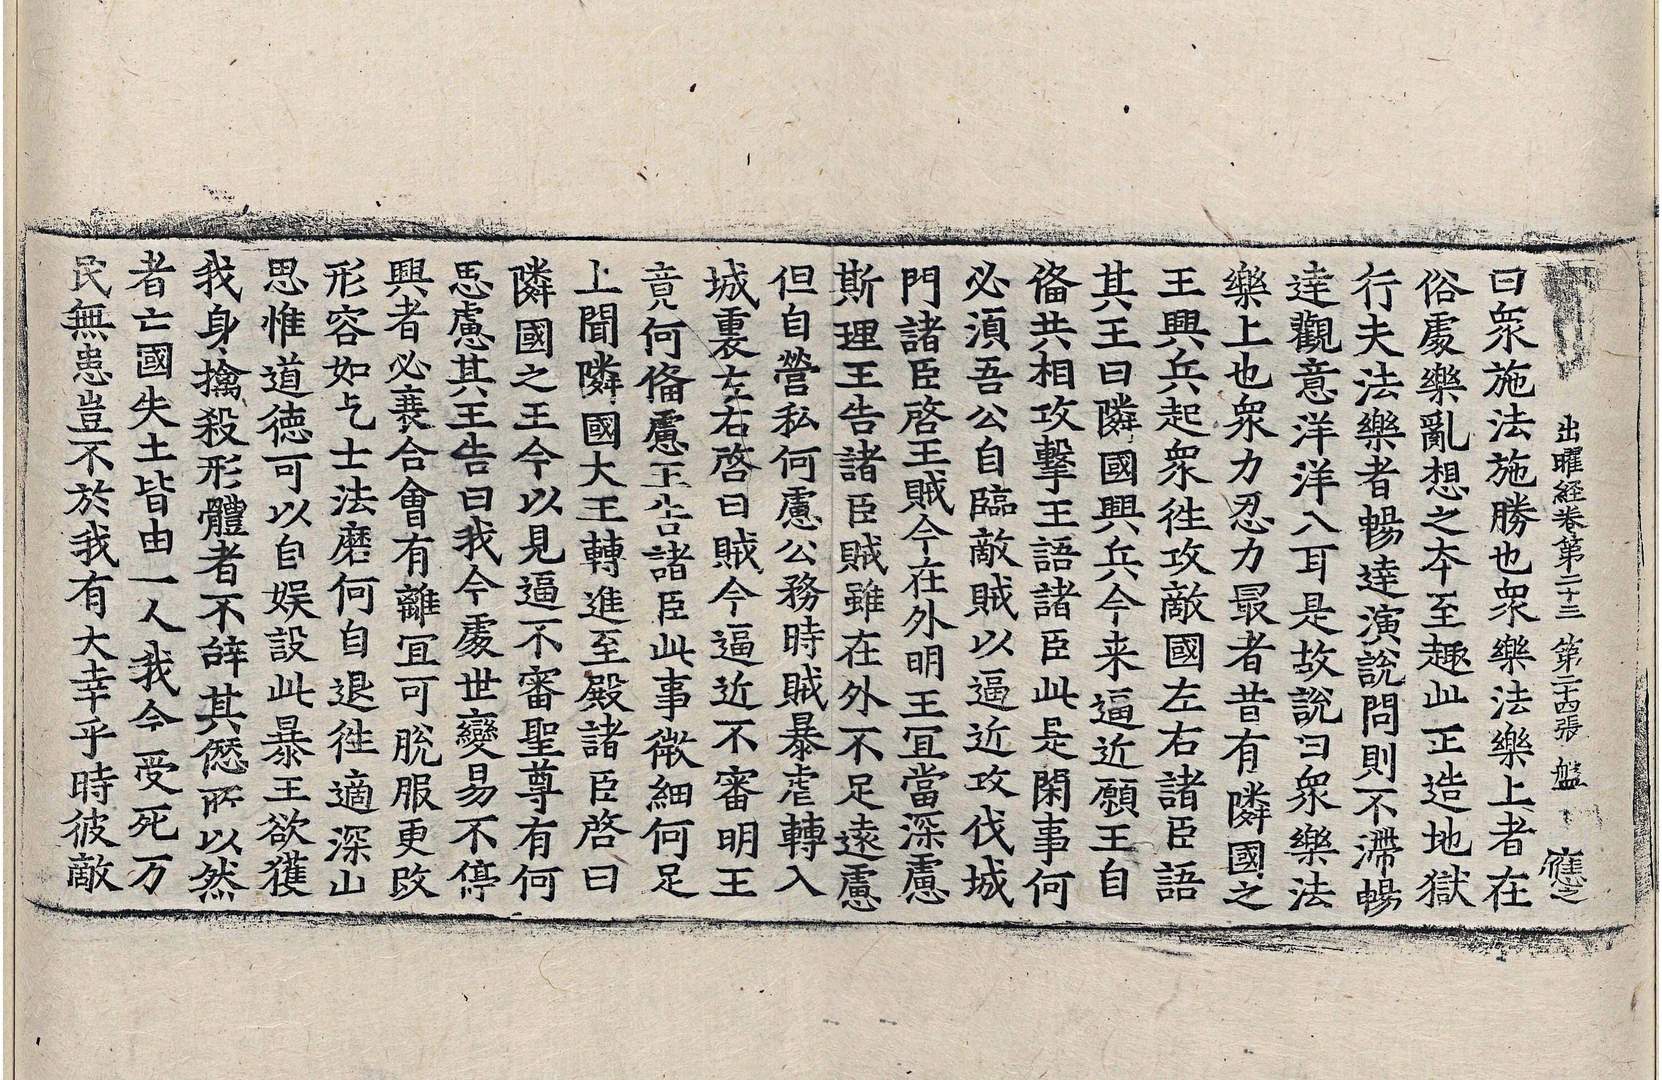 出曜経卷第二十三 第二十四張 盤 應之
曰衆施法施勝也衆樂法樂上者在
俗處樂亂想之本至趣此正造地獄
行夫法樂者暢達演說問則不滯暢
達觀意洋洋入耳是故說曰衆樂法
樂上也衆力忍力最者昔有隣國之
王興兵起衆往攻敵國左右諸臣語
其王曰隣國興兵今来逼近願王自
俻共相攻擊王語諸臣此是閑事何
必湏吾公自臨敵賊以逼近攻伐城
門諸臣啓王賊今在外明王宜當深慮
斯理王告諸臣賊雖在外不足遠慮
但自營私何慮公務時賊暴虐轉入
城裏左右啓曰賊今逼近不審明王
竟何俻慮王告諸臣此事微細何足
上聞隣國大王轉進至殿諸臣啓曰
隣國之王今以見逼不審聖尊有何
思慮其王告曰我今處世變易不停
興者必衰合會有離宜可脫服更改
形容如乞士法磨何自退往適深山
思惟道德可以自娛設此暴王欲獲
我身擒殺形體者不辞其僽所以然
者亡國失土皆由一人我今受死万
民無患豈不於我有大幸乎時彼敵